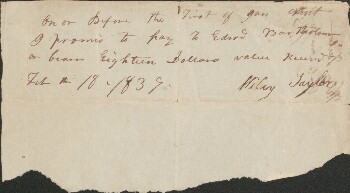 On or Before the First of Jan next
I promis to pay to Edwd Bartholomew
or bearer Eighteen Dollars value Receivd
Feb th 18 - 1837 Wiley Taylor